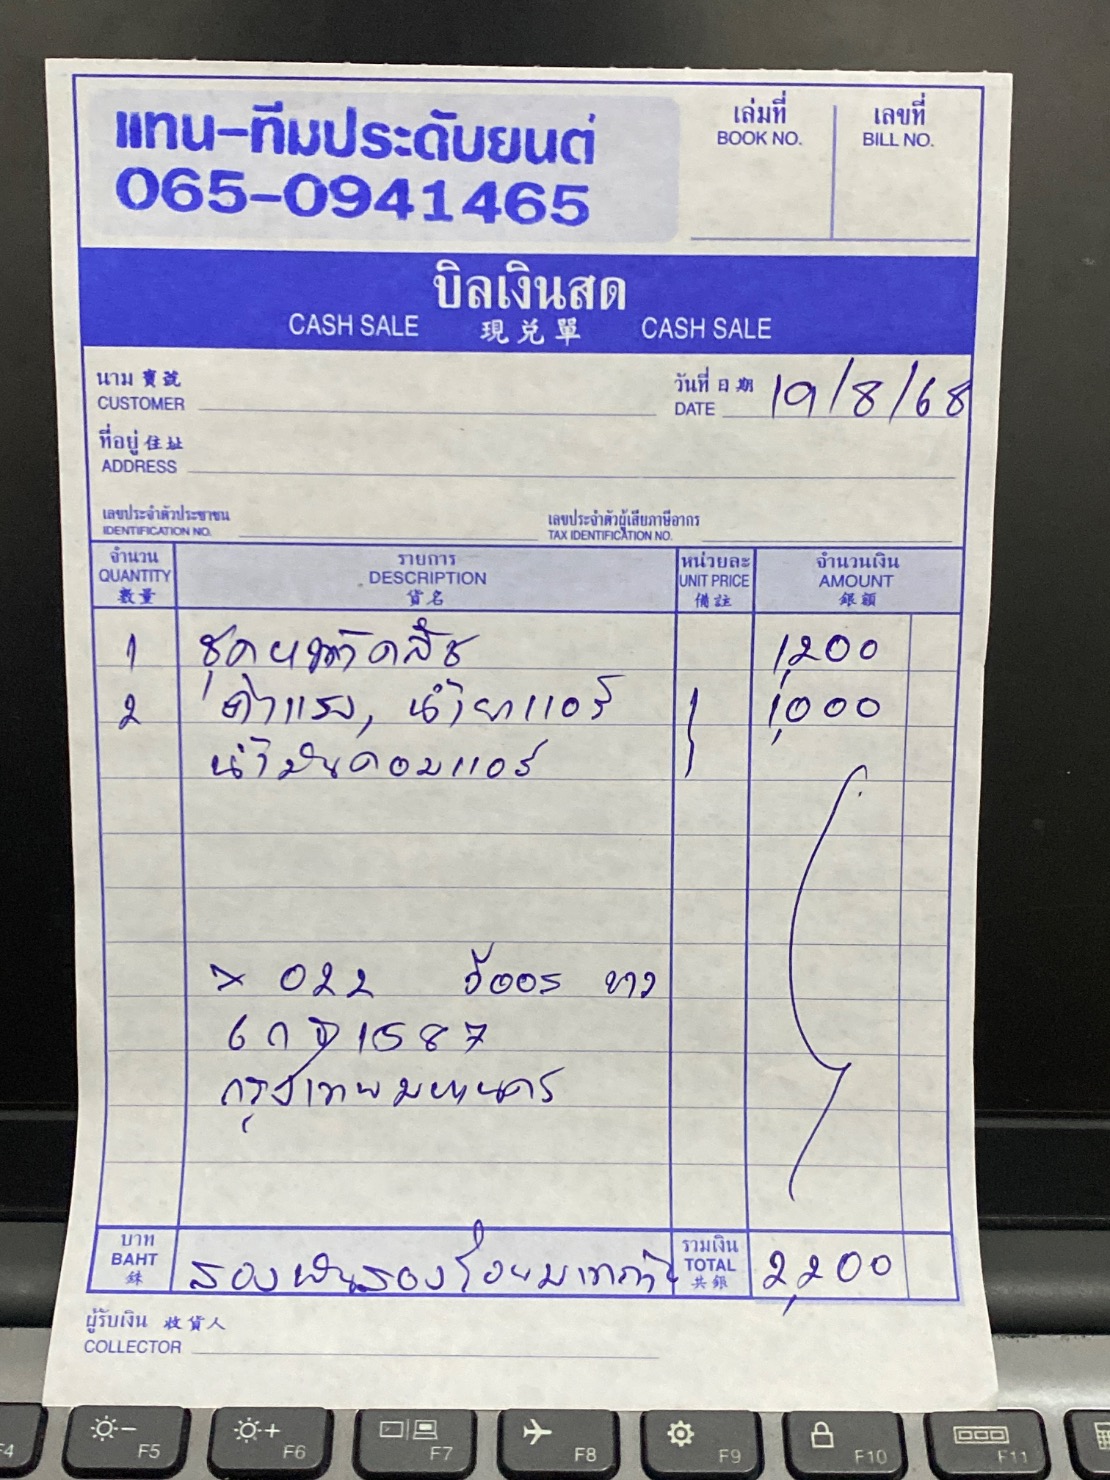 แทน-ทีมประดับยนต์
065-0941465
เล่มที่
BOOK NO.
เลขที่
BILL NO.
บิลเงินสด
CASH SALE 現兌單 CASH SALE
นาม 寶號
CUSTOMER
วันที่ 日期
DATE 19/8/68
ที่อยู่ 住址
ADDRESS
เลขประจำตัวประชาชน
IDENTIFICATION NO.
เลขประจำตัวผู้เสียภาษีอากร
TAX IDENTIFICATION NO.
จำนวน
QUANTITY
數量
รายการ
DESCRIPTION
貨名
หน่วยละ
UNIT PRICE
備註
จำนวนเงิน
AMOUNT
銀額
1 ชุดหน้าคลัช 1,200
2 ค่าแรง, น้ำยาแอร์ 1,000
น้ำมันคอมแอร์
022 วีออส ขาว
1587
กรุงเทพมหานคร
บาท
BAHT
銖
สองพันสองร้อย
รวมเงิน
TOTAL
共銀
2,200
ผู้รับเงิน 收貨人
COLLECTOR
F4
F5
F6
F7
F8
F9
F10
F11